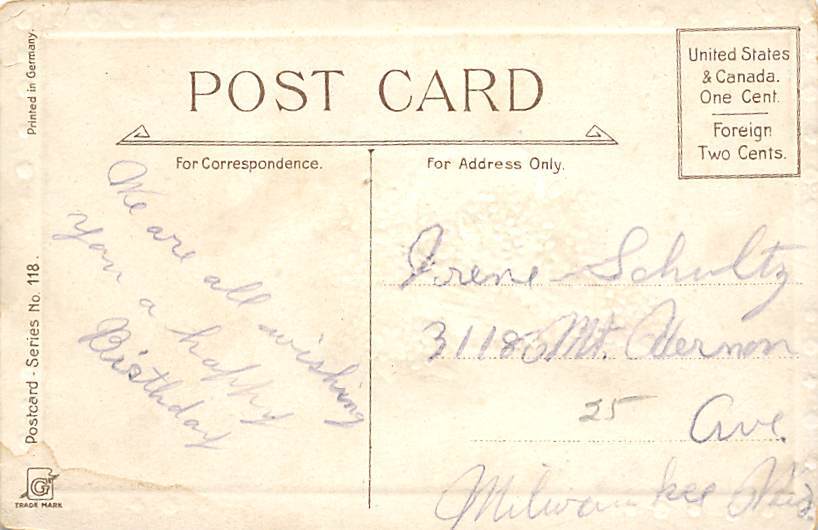 Printed in Germany.
POST CARD
United States
& Canada.
One Cent.
Foreign
Two Cents.
For Correspondence.
For Address Only.
We are all wishing
you a happy
Birthday
Irene Schultz
3118 Mt. Vernon
25 Ave.
Milwaukee Wis
Postcard - Series No. 118.
G
TRADE MARK